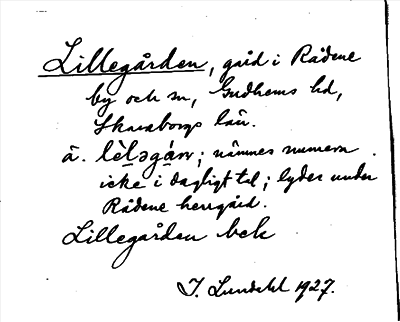 Lillegården, gård i Rådene
by och sn, Gudhems hd,
Skaraborgs län.
ä. lèləgáṛn; nämnes numera
icke i dagligt tal; lyder under
Rådene herrgård.
Lillegården bek
I. Lundahl 1927.